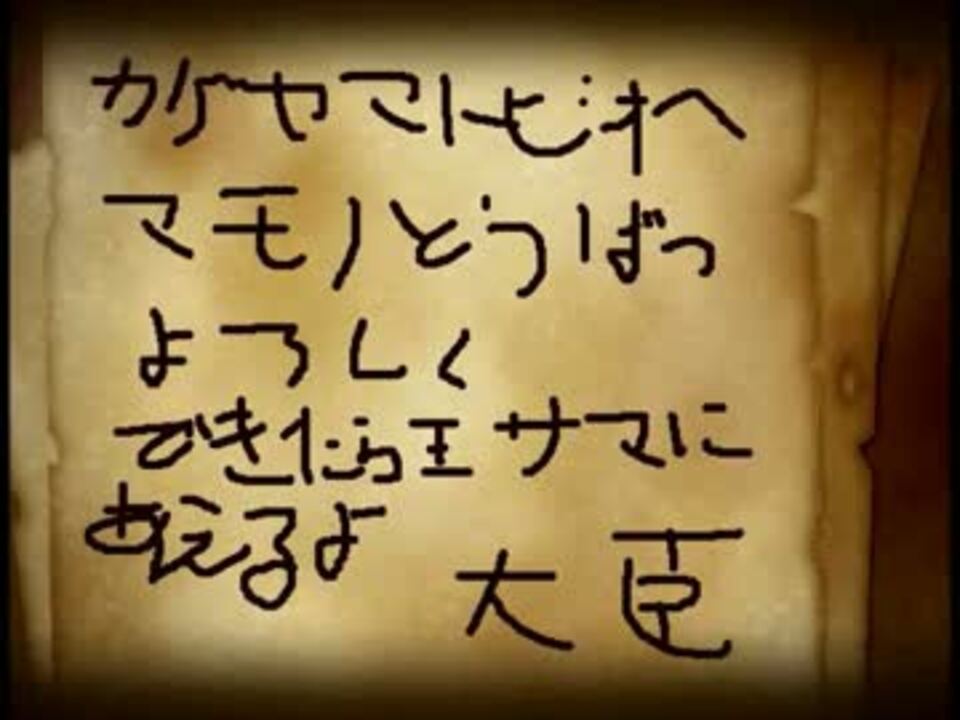 カゲヤマトビオへ
マモノとうばつ
よろしく
できたら王サマに
あえるよ
大臣